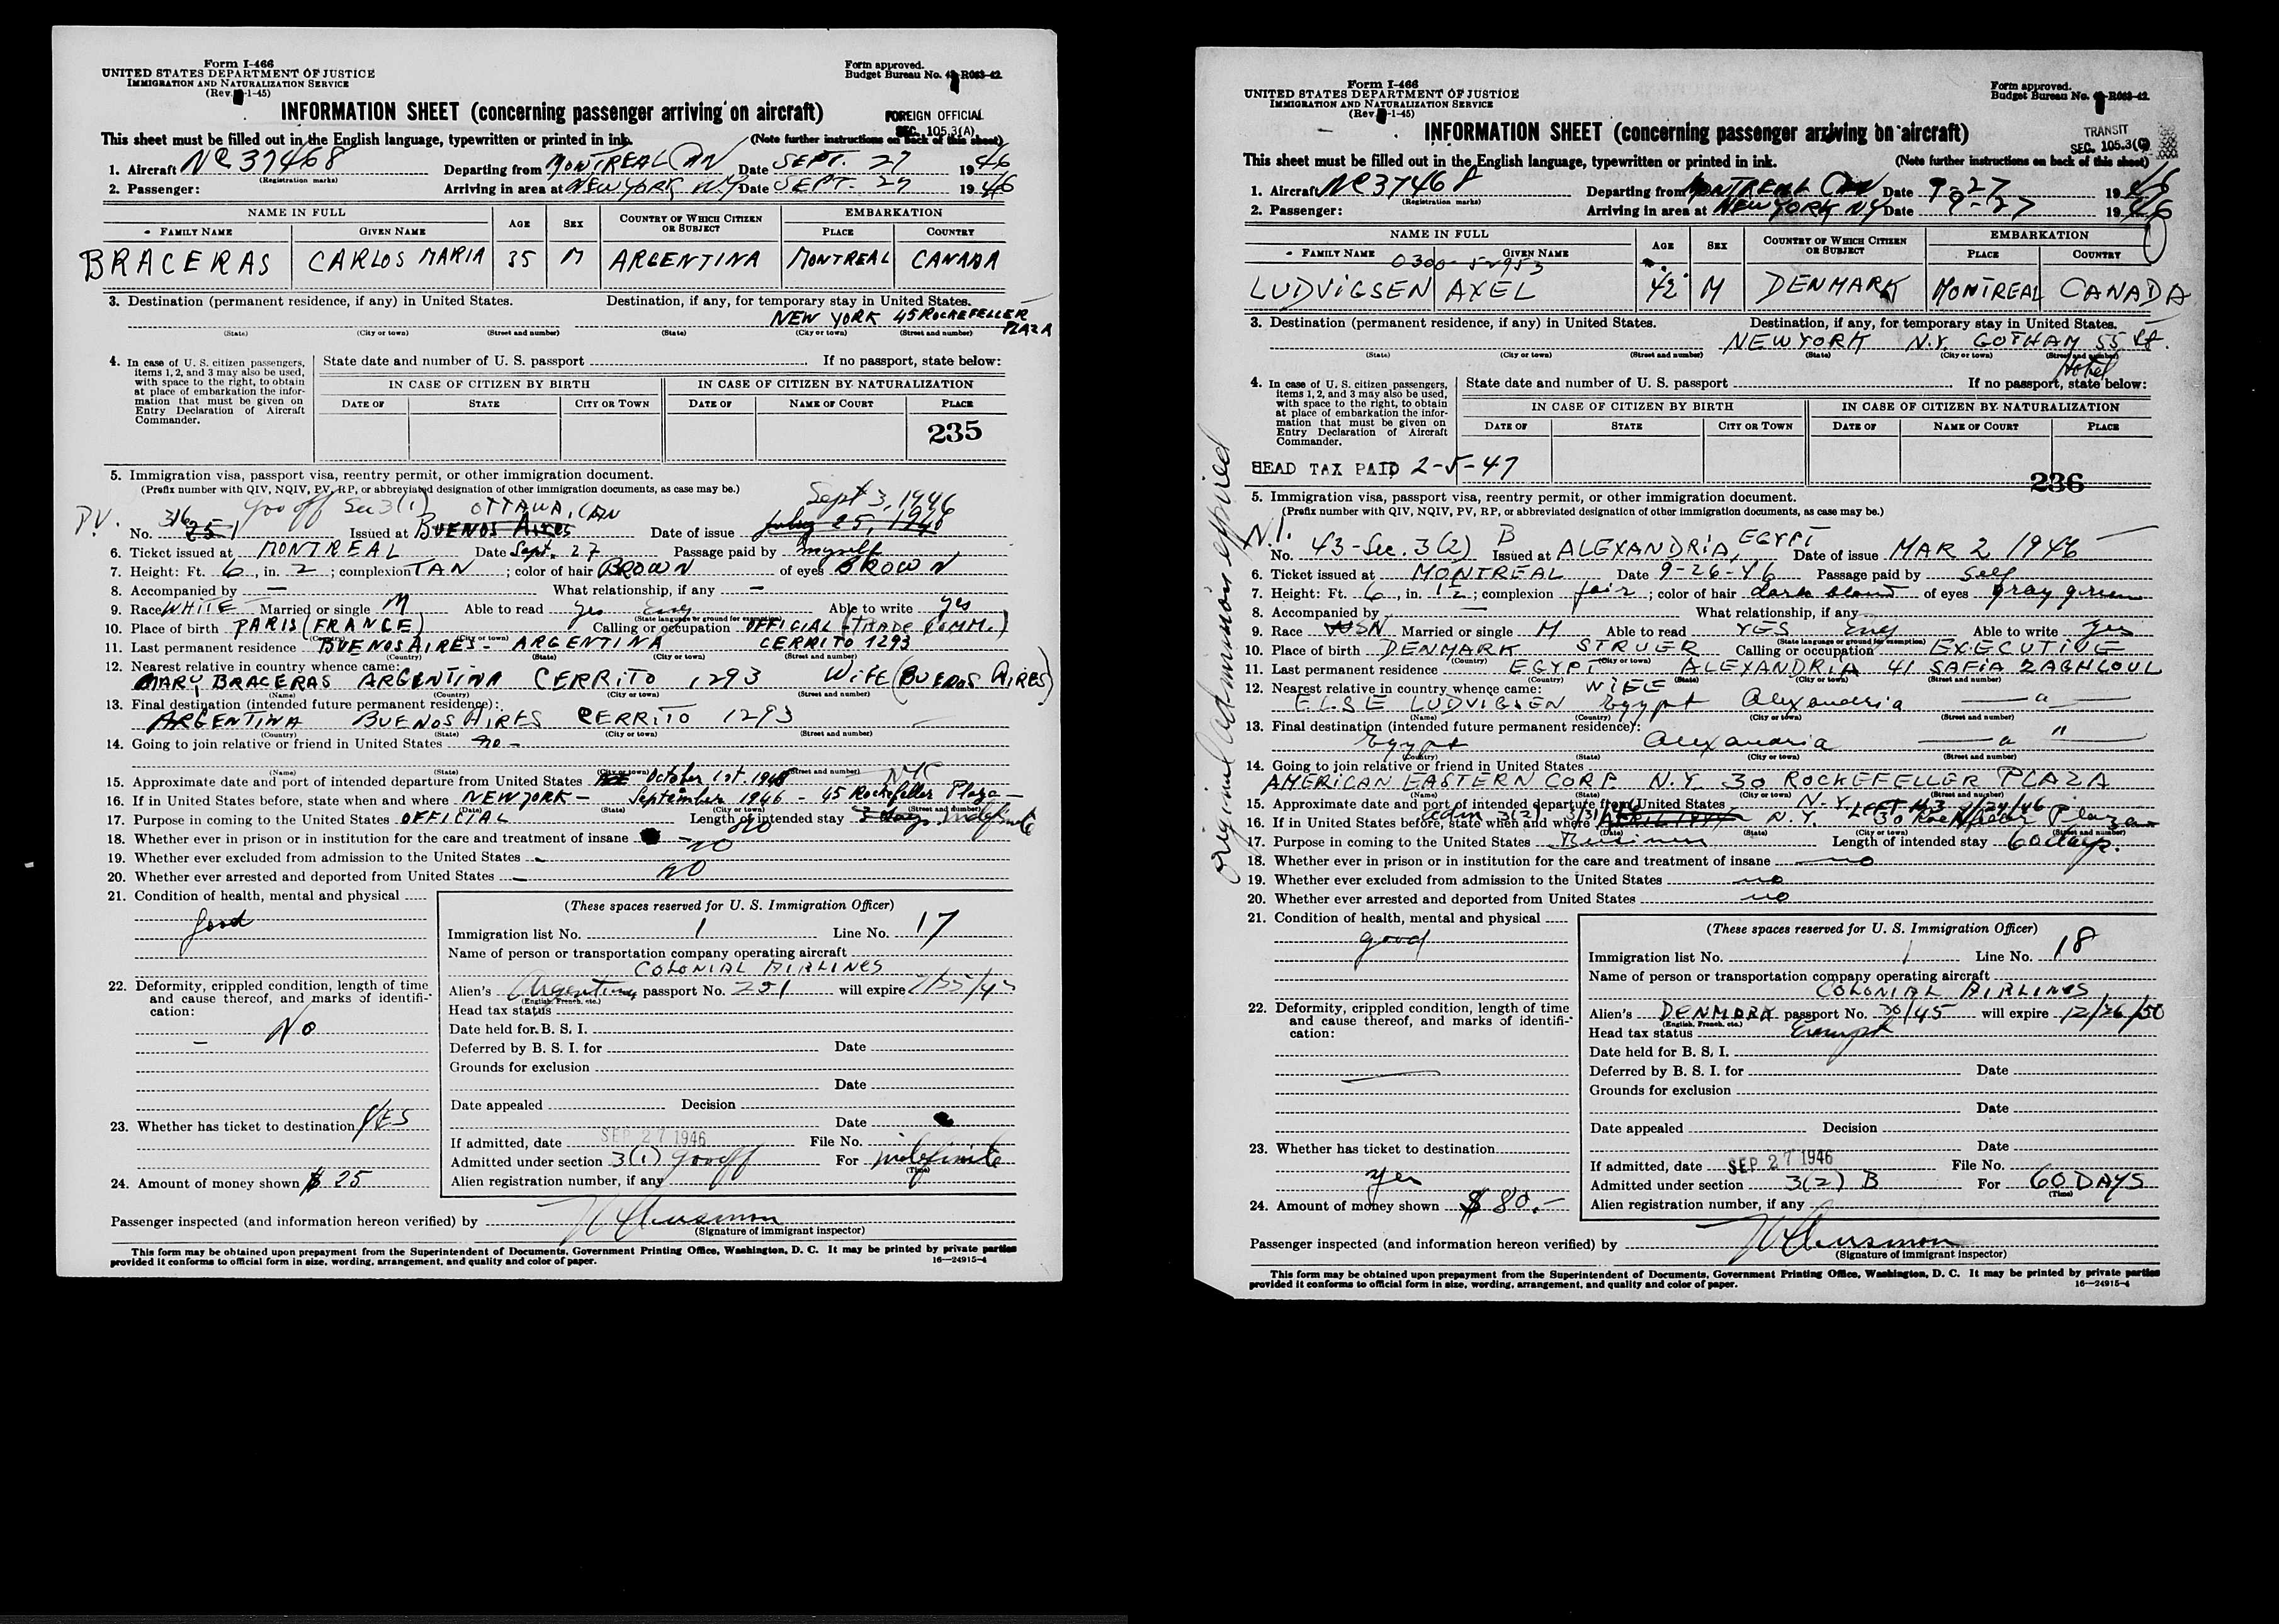 Form I-466
UNITED STATES DEPARTMENT OF JUSTICE
IMMIGRATION AND NATURALIZATION SERVICE
(Rev. -1-45)
Form approved.
Budget Bureau No. -R063-42.
INFORMATION SHEET (concerning passenger arriving on aircraft)
FOREIGN OFFICIAL
SEC. 105.3(A)
This sheet must be filled out in the English language, typewritten or printed in ink. (Note further instructions on back of this sheet)
1. Aircraft NC 37468 Departing from MONTREAL CAN Date SEPT. 27 1946
(Registration marks)
2. Passenger: Arriving in area at NEW YORK N.Y. Date SEPT. 27 1946
NAME IN FULL AGE SEX COUNTRY OF WHICH CITIZEN OR SUBJECT EMBARKATION
FAMILY NAME GIVEN NAME PLACE COUNTRY
BRACERAS CARLOS MARIA 35 M ARGENTINA MONTREAL CANADA
3. Destination (permanent residence, if any) in United States. Destination, if any, for temporary stay in United States.
NEW YORK 45 ROCKEFELLER PLAZA
(State) (City or town) (Street and number) (State) (City or town) (Street and number)
4. In case of U. S. citizen passengers, items 1, 2, and 3 may also be used, with space to the right, to obtain at place of embarkation the information that must be given on Entry Declaration of Aircraft Commander.
State date and number of U. S. passport If no passport, state below:
IN CASE OF CITIZEN BY BIRTH IN CASE OF CITIZEN BY NATURALIZATION
DATE OF STATE CITY OR TOWN DATE OF NAME OF COURT PLACE
235
5. Immigration visa, passport visa, reentry permit, or other immigration document.
(Prefix number with QIV, NQIV, PV, RP, or abbreviated designation of other immigration documents, as case may be.)
Gov off Sec 3(1) OTTAWA, CAN Sept 3, 1946
P.V. No. 316 251 Issued at BUENOS AIRES Date of issue July 25, 1946
6. Ticket issued at MONTREAL Date Sept. 27 Passage paid by myself
7. Height: Ft. 6, in. 2; complexion TAN; color of hair BROWN of eyes BROWN
8. Accompanied by — What relationship, if any —
9. Race WHITE Married or single M Able to read yes Eng Able to write yes
(State language or ground for exemption)
10. Place of birth PARIS (FRANCE) Calling or occupation OFFICIAL (TRADE COMM.)
(Country) (City or town)
11. Last permanent residence BUENOS AIRES - ARGENTINA CERRITO 1293
(Country) (State) (City or town) (Street and number)
12. Nearest relative in country whence came:
MARY BRACERAS ARGENTINA CERRITO 1293 WIFE (BUENOS AIRES)
(Name) (Country) (City or town) (Street and number)
13. Final destination (intended future permanent residence):
ARGENTINA BUENOS AIRES CERRITO 1293
(Country) (State) (City or town) (Street and number)
14. Going to join relative or friend in United States no -
(Name) (State) (City or town) (Street and number)
15. Approximate date and port of intended departure from United States October 1st. 1946 NYC
16. If in United States before, state when and where NEW YORK - September 1946 - 45 Rockefeller Plaza -
(Date) (State) (City or town) (Street and number)
17. Purpose in coming to the United States OFFICIAL Length of intended stay 3 days indefinite
18. Whether ever in prison or in institution for the care and treatment of insane no
19. Whether ever excluded from admission to the United States - no
20. Whether ever arrested and deported from United States - no
21. Condition of health, mental and physical
good
22. Deformity, crippled condition, length of time and cause thereof, and marks of identification:
No
23. Whether has ticket to destination YES
24. Amount of money shown $ 25
(These spaces reserved for U. S. Immigration Officer)
Immigration list No. 1 Line No. 17
Name of person or transportation company operating aircraft
COLONIAL AIRLINES
Alien's Argentine passport No. 251 will expire
(English, French, etc.)
Head tax status
Date held for B. S. I.
Deferred by B. S. I. for Date
Grounds for exclusion
Date
Date appealed Decision
Date
If admitted, date SEP 27 1946 File No.
Admitted under section 3(1) Gov off For indefinite
(Time)
Alien registration number, if any
Passenger inspected (and information hereon verified) by
(Signature of immigrant inspector)
This form may be obtained upon prepayment from the Superintendent of Documents, Government Printing Office, Washington, D. C. It may be printed by private parties
provided it conforms to official form in size, wording, arrangement, and quality and color of paper. 16—24915-4
Form I-466
UNITED STATES DEPARTMENT OF JUSTICE
IMMIGRATION AND NATURALIZATION SERVICE
(Rev. -1-45)
Form approved.
Budget Bureau No. -R063-42.
INFORMATION SHEET (concerning passenger arriving on aircraft)
TRANSIT
SEC. 105.3(C)
This sheet must be filled out in the English language, typewritten or printed in ink. (Note further instructions on back of this sheet)
1. Aircraft NC 37468 Departing from MONTREAL CAN Date 9-27 1946
(Registration marks)
2. Passenger: Arriving in area at NEW YORK NY Date 9-27 1946
NAME IN FULL AGE SEX COUNTRY OF WHICH CITIZEN OR SUBJECT EMBARKATION
FAMILY NAME GIVEN NAME PLACE COUNTRY
0300-52953
LUDVIGSEN AXEL 42 M DENMARK MONTREAL CANADA
3. Destination (permanent residence, if any) in United States. Destination, if any, for temporary stay in United States.
NEW YORK N.Y. GOTHAM 55 St. Hotel
(State) (City or town) (Street and number) (State) (City or town) (Street and number)
4. In case of U. S. citizen passengers, items 1, 2, and 3 may also be used, with space to the right, to obtain at place of embarkation the information that must be given on Entry Declaration of Aircraft Commander.
State date and number of U. S. passport If no passport, state below:
IN CASE OF CITIZEN BY BIRTH IN CASE OF CITIZEN BY NATURALIZATION
DATE OF STATE CITY OR TOWN DATE OF NAME OF COURT PLACE
HEAD TAX PAID 2-5-47
236
original admission expired
5. Immigration visa, passport visa, reentry permit, or other immigration document.
(Prefix number with QIV, NQIV, PV, RP, or abbreviated designation of other immigration documents, as case may be.)
N.I. No. 43-Sec. 3(2) B Issued at ALEXANDRIA, EGYPT Date of issue MAR 2 1946
6. Ticket issued at MONTREAL Date 9-26-46 Passage paid by self
7. Height: Ft. 6, in. 1/2; complexion fair; color of hair dark blond of eyes gray green
8. Accompanied by — What relationship, if any
9. Race SN Married or single M Able to read YES Eng Able to write yes
(State language or ground for exemption)
10. Place of birth DENMARK STRUER Calling or occupation EXECUTIVE
(Country) (City or town)
11. Last permanent residence EGYPT ALEXANDRIA 41 SAFIA ZAGHLOUL
(Country) (State) (City or town) (Street and number)
12. Nearest relative in country whence came: WIFE
ELSE LUDVIGSEN Egypt Alexandria — " —
(Name) (Country) (City or town) (Street and number)
13. Final destination (intended future permanent residence):
Egypt Alexandria — " —
(Country) (State) (City or town) (Street and number)
14. Going to join relative or friend in United States
AMERICAN EASTERN CORP. N.Y. 30 ROCKEFELLER PLAZA
(Name) (State) (City or town) (Street and number)
15. Approximate date and port of intended departure from United States N.Y. LEFT 9/24/46
16. If in United States before, state when and where adm 3(2) 3/31/46 N.Y. 30 Rockefeller Plaza
(Date) (State) (City or town) (Street and number)
17. Purpose in coming to the United States Business Length of intended stay 60 days.
18. Whether ever in prison or in institution for the care and treatment of insane no
19. Whether ever excluded from admission to the United States no
20. Whether ever arrested and deported from United States no
21. Condition of health, mental and physical
good
22. Deformity, crippled condition, length of time and cause thereof, and marks of identification:
—
23. Whether has ticket to destination
yes
24. Amount of money shown $ 80.—
(These spaces reserved for U. S. Immigration Officer)
Immigration list No. 1 Line No. 18
Name of person or transportation company operating aircraft
COLONIAL AIRLINES
Alien's DENMARK passport No. 36/45 will expire 12/26/50
(English, French, etc.)
Head tax status Exempt
Date held for B. S. I.
Deferred by B. S. I. for Date
Grounds for exclusion
Date
Date appealed Decision
Date
If admitted, date SEP 27 1946 File No.
Admitted under section 3(2) B For 60 DAYS
(Time)
Alien registration number, if any
Passenger inspected (and information hereon verified) by
(Signature of immigrant inspector)
This form may be obtained upon prepayment from the Superintendent of Documents, Government Printing Office, Washington, D. C. It may be printed by private parties
provided it conforms to official form in size, wording, arrangement, and quality and color of paper. 16—24915-4